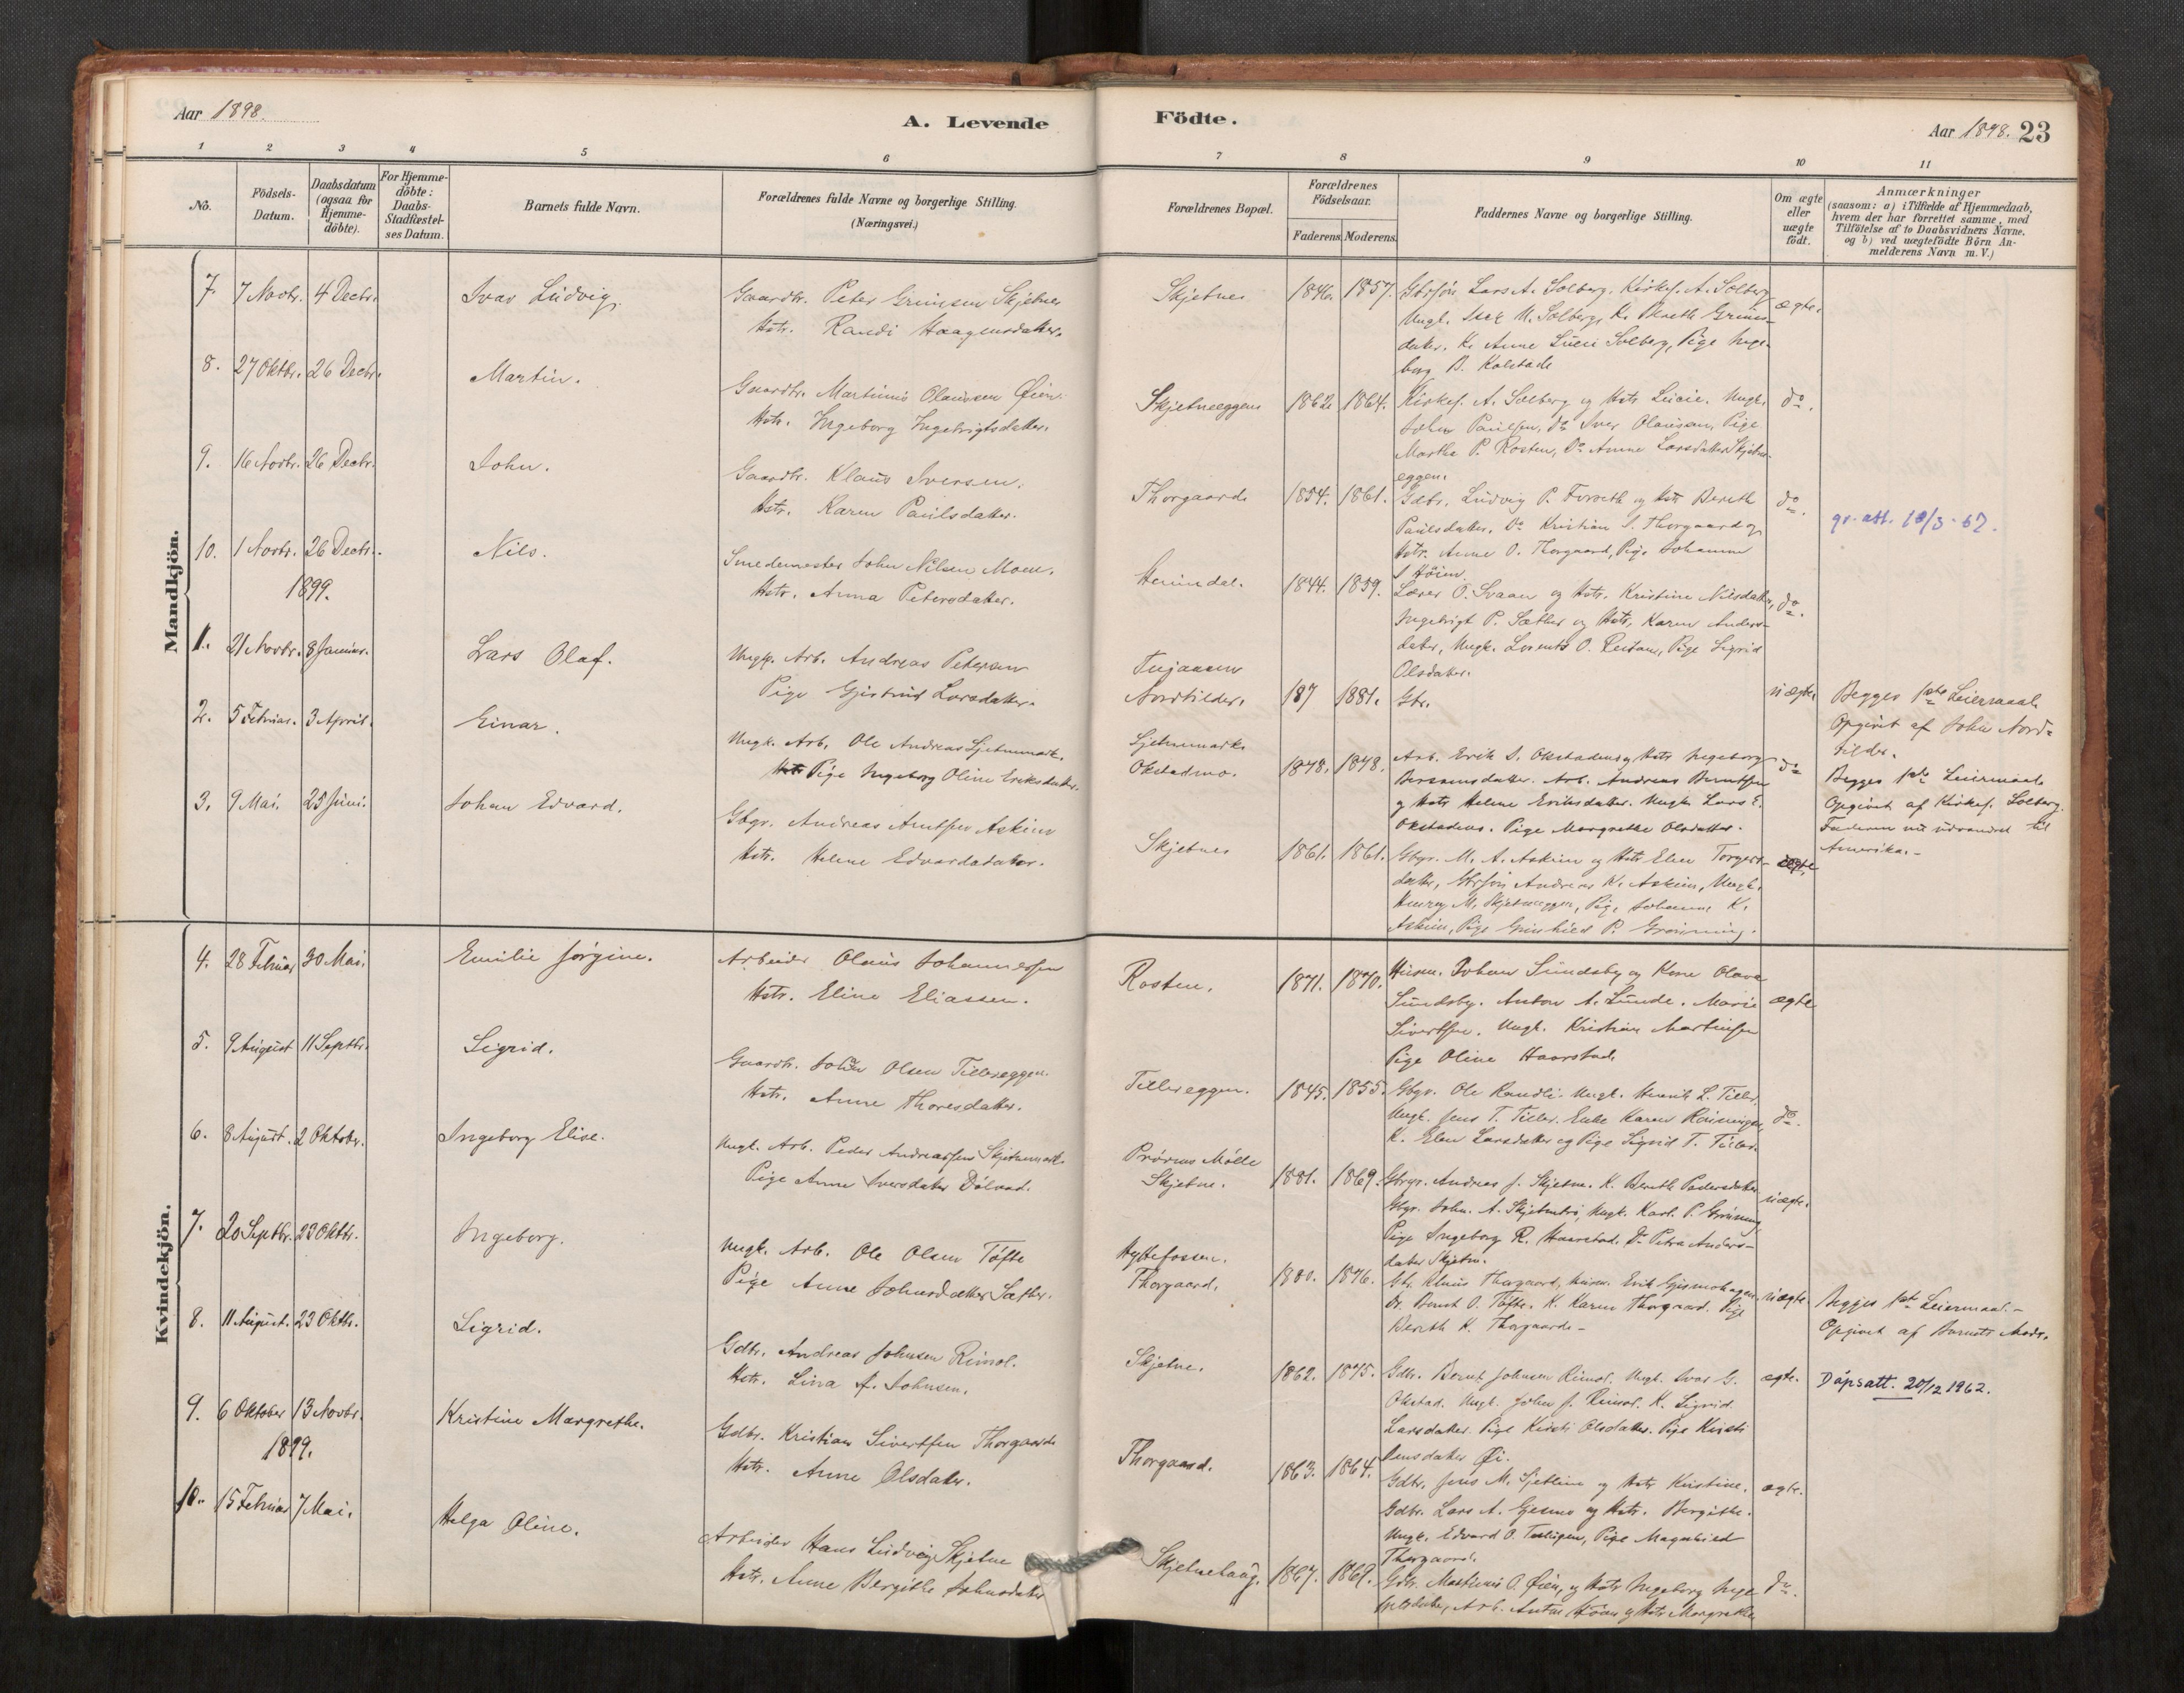 Aar 1898.
A. Levende
1 2 3 4 5 6
No.
Födsels-Datum.
Daabsdatum (ogsaa for Hjemme-döbte).
For Hjemme-döbte: Daabs-Stadfæstel-ses Datum.
Barnets fulde Navn.
Forældrenes fulde Navne og borgerlige Stilling.
(Næringsvei.)
Mandkjön.
7. 7 Novbr. 4 Decbr. Ivar Ludvig. Gaardbr. Peter Skjetnes
Hstr. Randi Haagensdatter.
8. 27 Oktbr. 26 Decbr. Martin. Gaardbr. Martinus Olaussen Øien.
Hstr. Ingeborg Ingebrigtsdatter.
9. 16 Novbr. 26 Decbr. John. Gaardbr. Klaus Iversen.
Hstr. Karen Paulsdatter.
10. 1 Novbr. 26 Decbr. Nils. Smedemester John Nilsen Moen.
Hstr. Anna Petersdatter.
1899.
1. 21 Novbr. 8 Januar. Lars Olaf. Ungk. Arb. Andreas Petersen
Pige Gjertrud Larsdatter.
2. 5 Februar. 3 April. Einar. Ungk. Arb. Ole Andreas
Pige Ingeborg Oline Eriksdatter.
3. 9 Mai. 25 Juni. Johan Edvard. Gbgr. Andreas Arntsen Askim
Hstr. Helene Edvardsdatter.
Kvindekjön.
4. 28 Februar 30 Mai. Emilie Jørgine. Arbeider Olaus Johannessen
Hstr. Eline Eliassen.
5. 9 August 11 Septbr. Sigrid. Gaardbr. John Olsen Tillereggen.
Hstr. Anne Thoresdatter.
6. 8 August. 2 Oktobr. Ingeborg Elise. Ungk. Arb. Peder Andreassen
Pige Anne Iversdatter
7. 20 Septbr. 23 Oktbr. Ingeborg. Ungk. Arb. Ole Olsen Tøfte
Pige Anne Johnsdatter Sæther.
8. 11 August. 23 Oktbr. Sigrid. Gdbr. Andreas Johnsen Rimol.
Hstr. Lina J. Johnsen.
9. 6 Oktober 13 Novbr. Kristine Margrethe. Gdbr. Kristian Sivertsen Thorgaard
Hstr. Anne Olsdatter.
1899.
10. 15 Februar 7 Mai. Helga Oline. Arbeider Hans Ludvig Skjetne
Hstr. Anne Bergitte Johnsdatter
Födte.
Aar 1898. 23
7 8 9 10 11
Forældrenes Bopæl.
Forældrenes Födselsaar.
Faderens. Moderens.
Faddernes Navne og borgerlige Stilling.
Om ægte eller uægte födt.
Anmærkninger
(saasom: a) i Tilfælde af Hjemmedaab,
hvem der har forrettet samme, med
Tilföielse af to Daabsvidners Navne.
og b) ved uægtefödte Börn An-
melderens Navn m. V.)
Skjetnes 1846. 1857. Gbrsøn Lars A. Solberg. Kirkes. A. Solberg ægte.
Solberg, K. Bereth
datter. K. Anne Lucie Solberg, Pige Inge-
borg B. Kolstad
Skjetneeggen 1862 1864. Kirkes. A. Solberg og Hstr. Lucie. Ungk. do.
John Paulsen, do Iver Olaussen, Pige
Marthe P. Rosten, Do Anne Larsdatter Skjetne-
eggen.
Thorgaard 1854. 1861. Gdbr. Ludvig P. Forseth og Hstr. Bereth do.
Paulsdatter. Do Kristian S. Thorgaard og
Hstr. Anne O. Thorgaard, Pige Johanna
S Høien.
gr. att.
1844. 1859. Lærer O. Svaan og Hstr. Kristine Nilsdatter, do.
Ingebrigt P. Sæther og Hstr. Karen Anders-
datter, Ungk. Lorents O. Reitan, Pige Sigrid
Olsdatter.
Nordtiller. 187 1881. Gbr. uægte. Begges 1ste Leiermaal.
Opgivet af John Nord-
tiller.
Okstadmo. 1878. 1878. Arb. Erik S. Okstadmo og Hstr. Ingeborg do
Arb. Andreas Berntsen
og Hstr Helene Eriksdatter. Ungk. Lars E.
Okstadmo. Pige Margrethe Olsdatter.
Begges 1ste Leiermaal.
Opgivet af Kirkes. Solberg.
Faderen nu udvandret til
Amerika.-
Skjetnes 1861. 1861. Gbgr. M. A. Askim og Hstr Elen Torgers- ægte
datter, Gbrsøn Andreas K. Askim, Ungk.
M. Skjetneeggen, Pige Johanna K.
Askim, Pige Gunhild P. Grønning.
Rosten. 1871. 1870. Husm. Johan Sundsby og Kone Olava ægte
Sundsby. Anton A. Lunde. Marie
Sivertsen. Ungk. Kristian Martinsen
Pige Oline Haarstad.
Tillereggen. 1845. 1855. Gbgr. Ole Randli. Ungk. Henrik L. Tiller. do.
Ungk. Jens T. Tiller. Enke Karen
K. Elen Larsdatter og Pige Sigrid T. Tiller.
Prøvens Mølle
Skjetne. 1881. 1869. Gbrgr. Andreas J. Skjetne. K. Bereth Pedersdatter uægte.
Gbgr. John A. Ungk. Karl P. Grønning,
Pige Ingeborg R. Haarstad. Do Petra Anders-
datter Skjetne.
Hyttefossen.
Thorgaard. 1880. 1876. Gbr. Klaus Thorgaard, Husm. Erik uægte.
Do. Bernt O. Tøfte. K. Karen Thorgaard. Pige
Bereth K. Thorgaard-
Begges 1ste Leiermaal.-
Opgivet af Barnets Moder.
Skjetne. 1862. 1875. Gdbr. Bernt Johnsen Rimol. Ungk. Ivar G. ægte. Dåpsatt. 20/12 1962.
Okstad. Ungk. John J. Rimol. K. Sigrid
Larsdatter. Pige Kirsti Olsdatter. Pige Kirsti
Jensdatter Øi.
Thorgaard. 1863. 1864. Gdbr. Jens M. og Hstr Kirstine. ægte.
Gdbr. Lars A. Gjesmo og Hstr. Bergitte.
Ungk. Edvard O. Pige Magnhild
Thorgaard.
Skjetnehaug. 1867. 1869. Gdbr. Martinus O. Øien, og Hstr Ingeborg Inge- do.
Arb. Anton og Hstr Margrethe